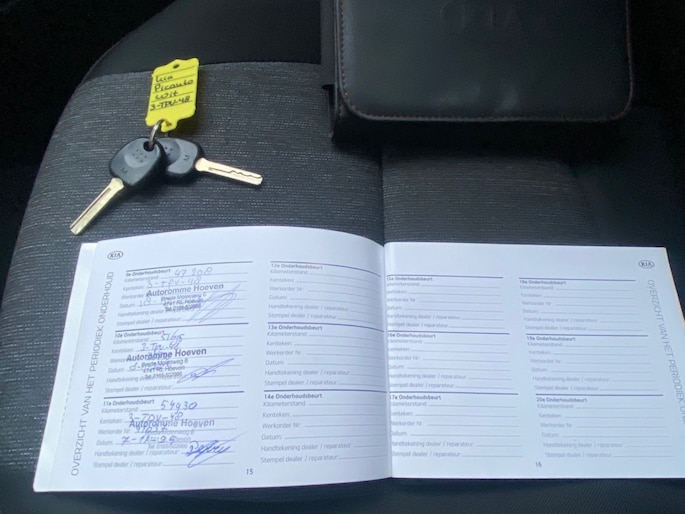 Kia
Picanto
wit
3-TPV-48
KIA
KIA
OVERZICHT VAN HET PERIODIEK ONDERHOUD
9e Onderhoudsbeurt
Kilometerstand
Kenteken: 3-TPV-48
Werkorder
Datum
Handtekening dealer / reparateur
Stempel dealer / reparateur
Autoromme Hoeven
10e Onderhoudsbeurt
Kilometerstand
Kenteken: 3-TPV-48
Werkorder
Datum
Handtekening dealer / reparateur
Stempel dealer / reparateur:
Autoromme Hoeven
11e Onderhoudsbeurt
Kilometerstand 54930
Kenteken: 3-TPV-48
Werkorder Nr
Datum:
Handtekening dealer / reparateur
Stempel dealer / reparateur:
Autoromme Hoeven
12e Onderhoudsbeurt
Kilometerstand:
Kenteken:
Werkorder Nr:
Datum:
Handtekening dealer / reparateur:
Stempel dealer / reparateur:
13e Onderhoudsbeurt
Kilometerstand:
Kenteken:
Werkorder Nr:
Datum:
Handtekening dealer / reparateur:
Stempel dealer / reparateur:
14e Onderhoudsbeurt
Kilometerstand:
Kenteken:
Werkorder Nr:
Datum:
Handtekening dealer / reparateur:
Stempel dealer / reparateur:
15
15e Onderhoudsbeurt
Kilometerstand:
Kenteken:
Werkorder Nr:
Datum:
Handtekening dealer / reparateur:
Stempel dealer / reparateur:
16e Onderhoudsbeurt
Kilometerstand:
Kenteken:
Werkorder Nr:
Datum:
Handtekening dealer / reparateur:
Stempel dealer / reparateur:
17e Onderhoudsbeurt
Kilometerstand:
Kenteken:
Werkorder Nr:
Datum:
Handtekening dealer / reparateur:
Stempel dealer / reparateur:
18e Onderhoudsbeurt
Kilometerstand:
Kenteken:
Werkorder Nr:
Datum:
Handtekening dealer / reparateur:
Stempel dealer / reparateur:
19e Onderhoudsbeurt
Kilometerstand:
Kenteken:
Werkorder Nr:
Datum:
Handtekening dealer / reparateur:
Stempel dealer / reparateur:
20e Onderhoudsbeurt
Kilometerstand:
Kenteken:
Werkorder Nr:
Datum:
Handtekening dealer / reparateur:
Stempel dealer / reparateur:
16
OVERZICHT VAN HET PERIODIEK